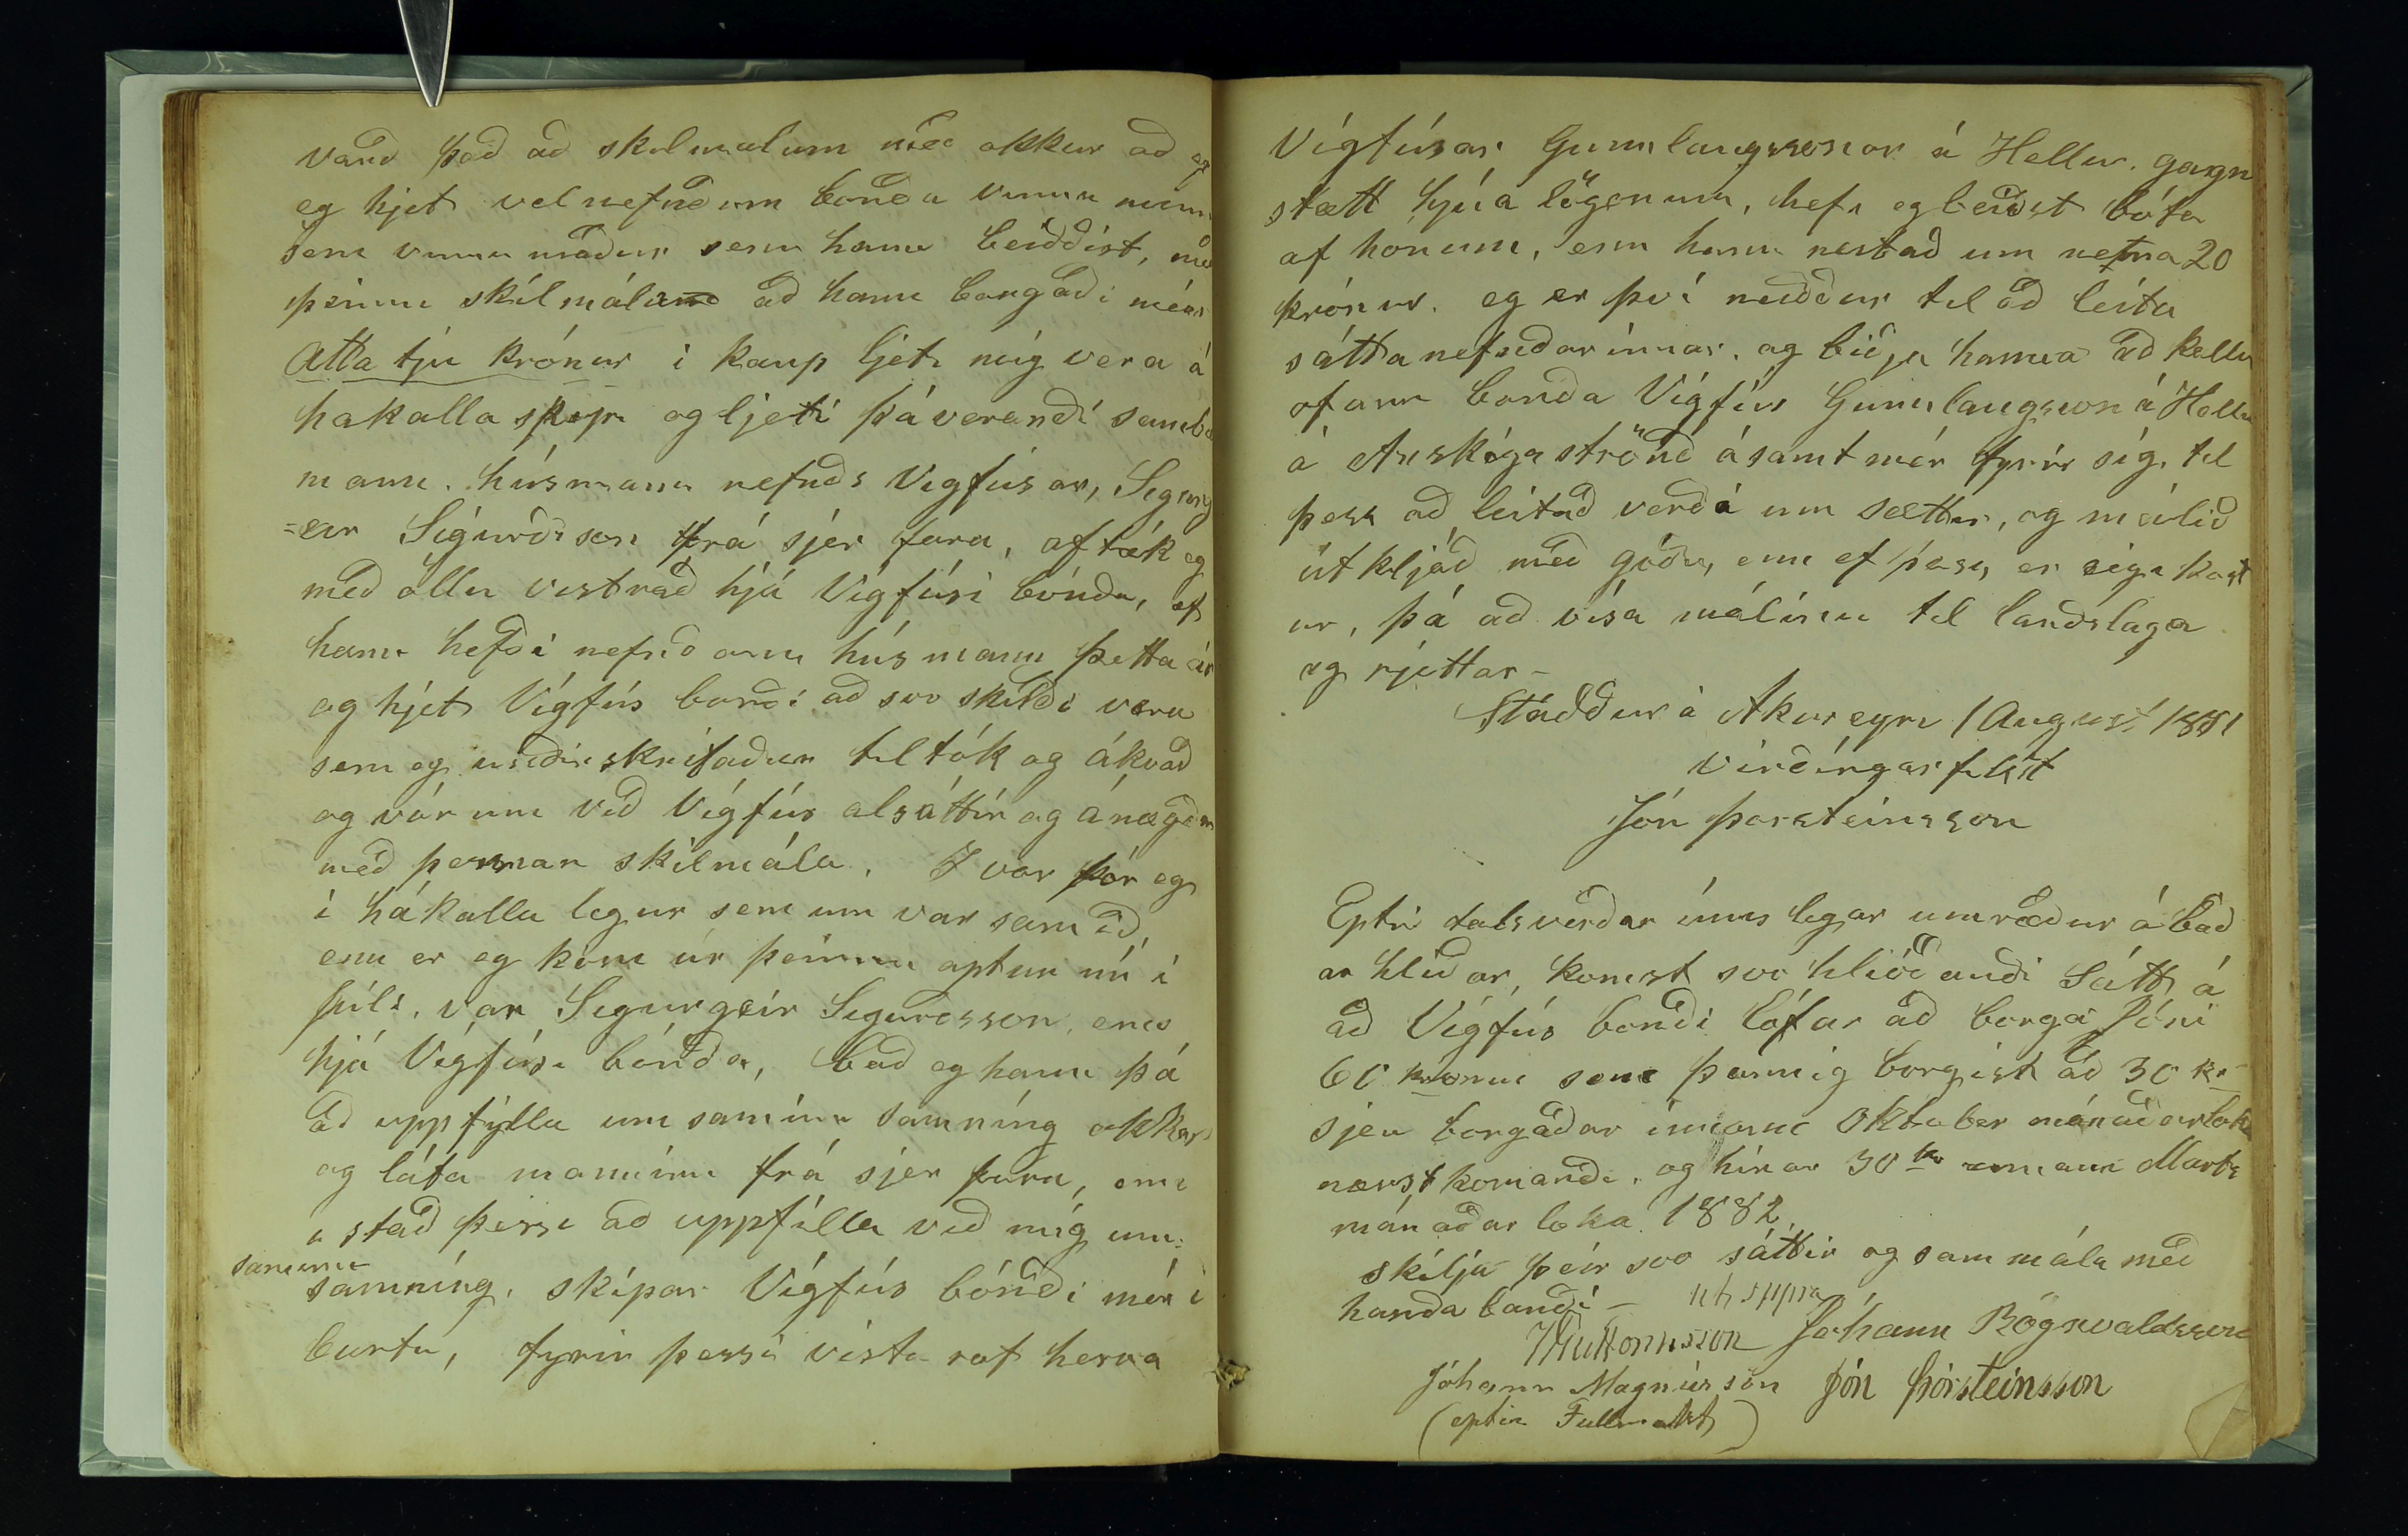 varð það að skilmalum með okkur að eg
eg hjet vel nefndum bonda vinnu minni
sem vinnu maður sem hann beiddist, með
þeimm skilmálum að hann borgaði mér
Átta tju krónur i kaup ljeti mig vera á
hakalla skipi og ljeti þáverandi sambæ
mann. húsmann nefnds Vigfúsar, Sigurg
=eir Sigurðsson frá sjer fara, aftók eg
með öllu vistráð hjá Vigfúsi bónda, ef
hann hefði nefndann húsmann þetta ár
og hjet Vigfús bondi að svo skildi vera
sem eg undirskrifaður tiltók og ákvað
og vórum við Vigfús alsáttir og ánægðir
með þennan skilmála. fór eg
i hákalla legur sem um var samið,
enn er eg kom úr þeimm aptur nú i
júli, var Sigurgeir Sigurðsson, enn
hjá Vigfúsi bónda, bað eg hann þá
að uppfylla umsaminn samning okkar
og láta manninn frá sjer fara, enn
i stað þess að uppfilla við mig um-
saminn
samning, skipar Vigfús bóndi mér i
burtu, fyrir þessi vista rof herra
Vigfúsar Gunnlaugssonar á Hellu, gagn
stætt hjúa lögonum, hefi eg beiðst bóta
af honum, enn hann restað um nema 20
krónur. eg er því neiddur til að leita
sátta nefndarinnar, og biðja hanna að kalla
ofann bonda Vigfús Gunnlaugsson á Hellu
á Arskógaströnd ásamt mér fyrir sig, til
þess að leitað verði um sættir, og málið
útkljáð með góðu, enn ef þess, er eigi kost
ur, þá að vísa málinu til landslaga
og rjettar-
Staddur á Akureyri 1 August 1881
virðingarfilst
Jón Þorsteinsson
Eptir talsverðar ímislegar umræður á báð
ar hliðar, komst svo hlióðandi Sátt á
að Vigfús bondi lofar að borga Jóni
60 krónur sem þannig borgist að 30 kr
sjeu borgaðar innann Oktober mánaðarloka
næstkomandi, og hinar 30 kr innann Marts
mánaðar loka 1882
skilja þeir svo sáttir og sammála með
handa bandi -
JGuttormsson Jóhann Rögnvaldsson
Jóhann Magnússon Jón Þorsteinsson
(eptir Fullmakt)